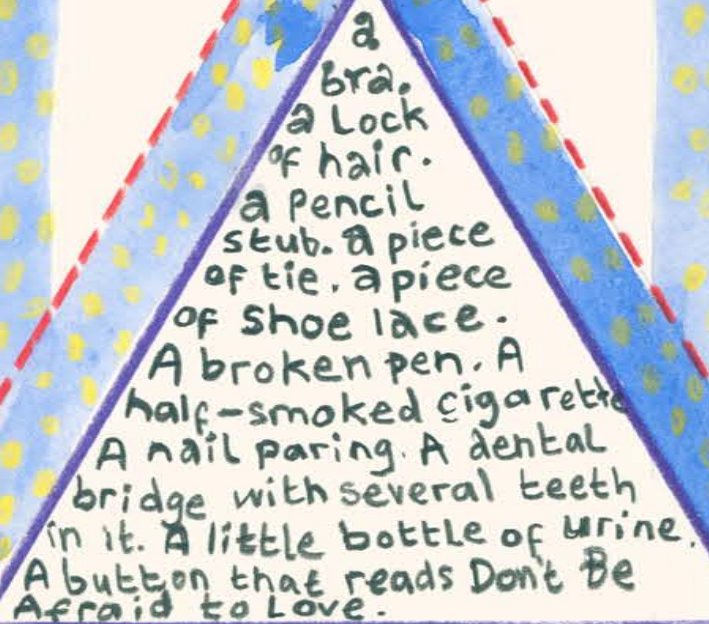 a
bra.
a Lock
of hair.
a pencil
stub. a piece
of tie. a piece
of shoe lace.
A broken pen. A
half-smoked cigarette
A nail paring. A dental
bridge with several teeth
in it. A little bottle of urine.
A button that reads Don't Be
Afraid to Love.